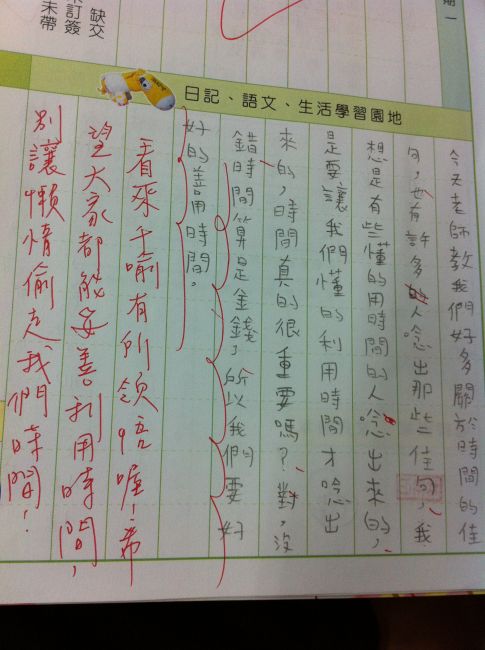 期一
缺交
未訂簽
未帶
日記、語文、生活學習園地
今天老師教我們好多關於時間的佳
句,也有許多的人唸出那些佳句,我
想是有些懂的用時間的人唸出來的,
是要讓我們懂的利用時間才唸出
來的,時間真的很重要嗎?對,沒
錯時間算是金錢了所以我們要好
好的善用時間。
看來千喻有所領悟喔!希
望大家都能妥善利用時間,
別讓懶惰偷走我們時間!